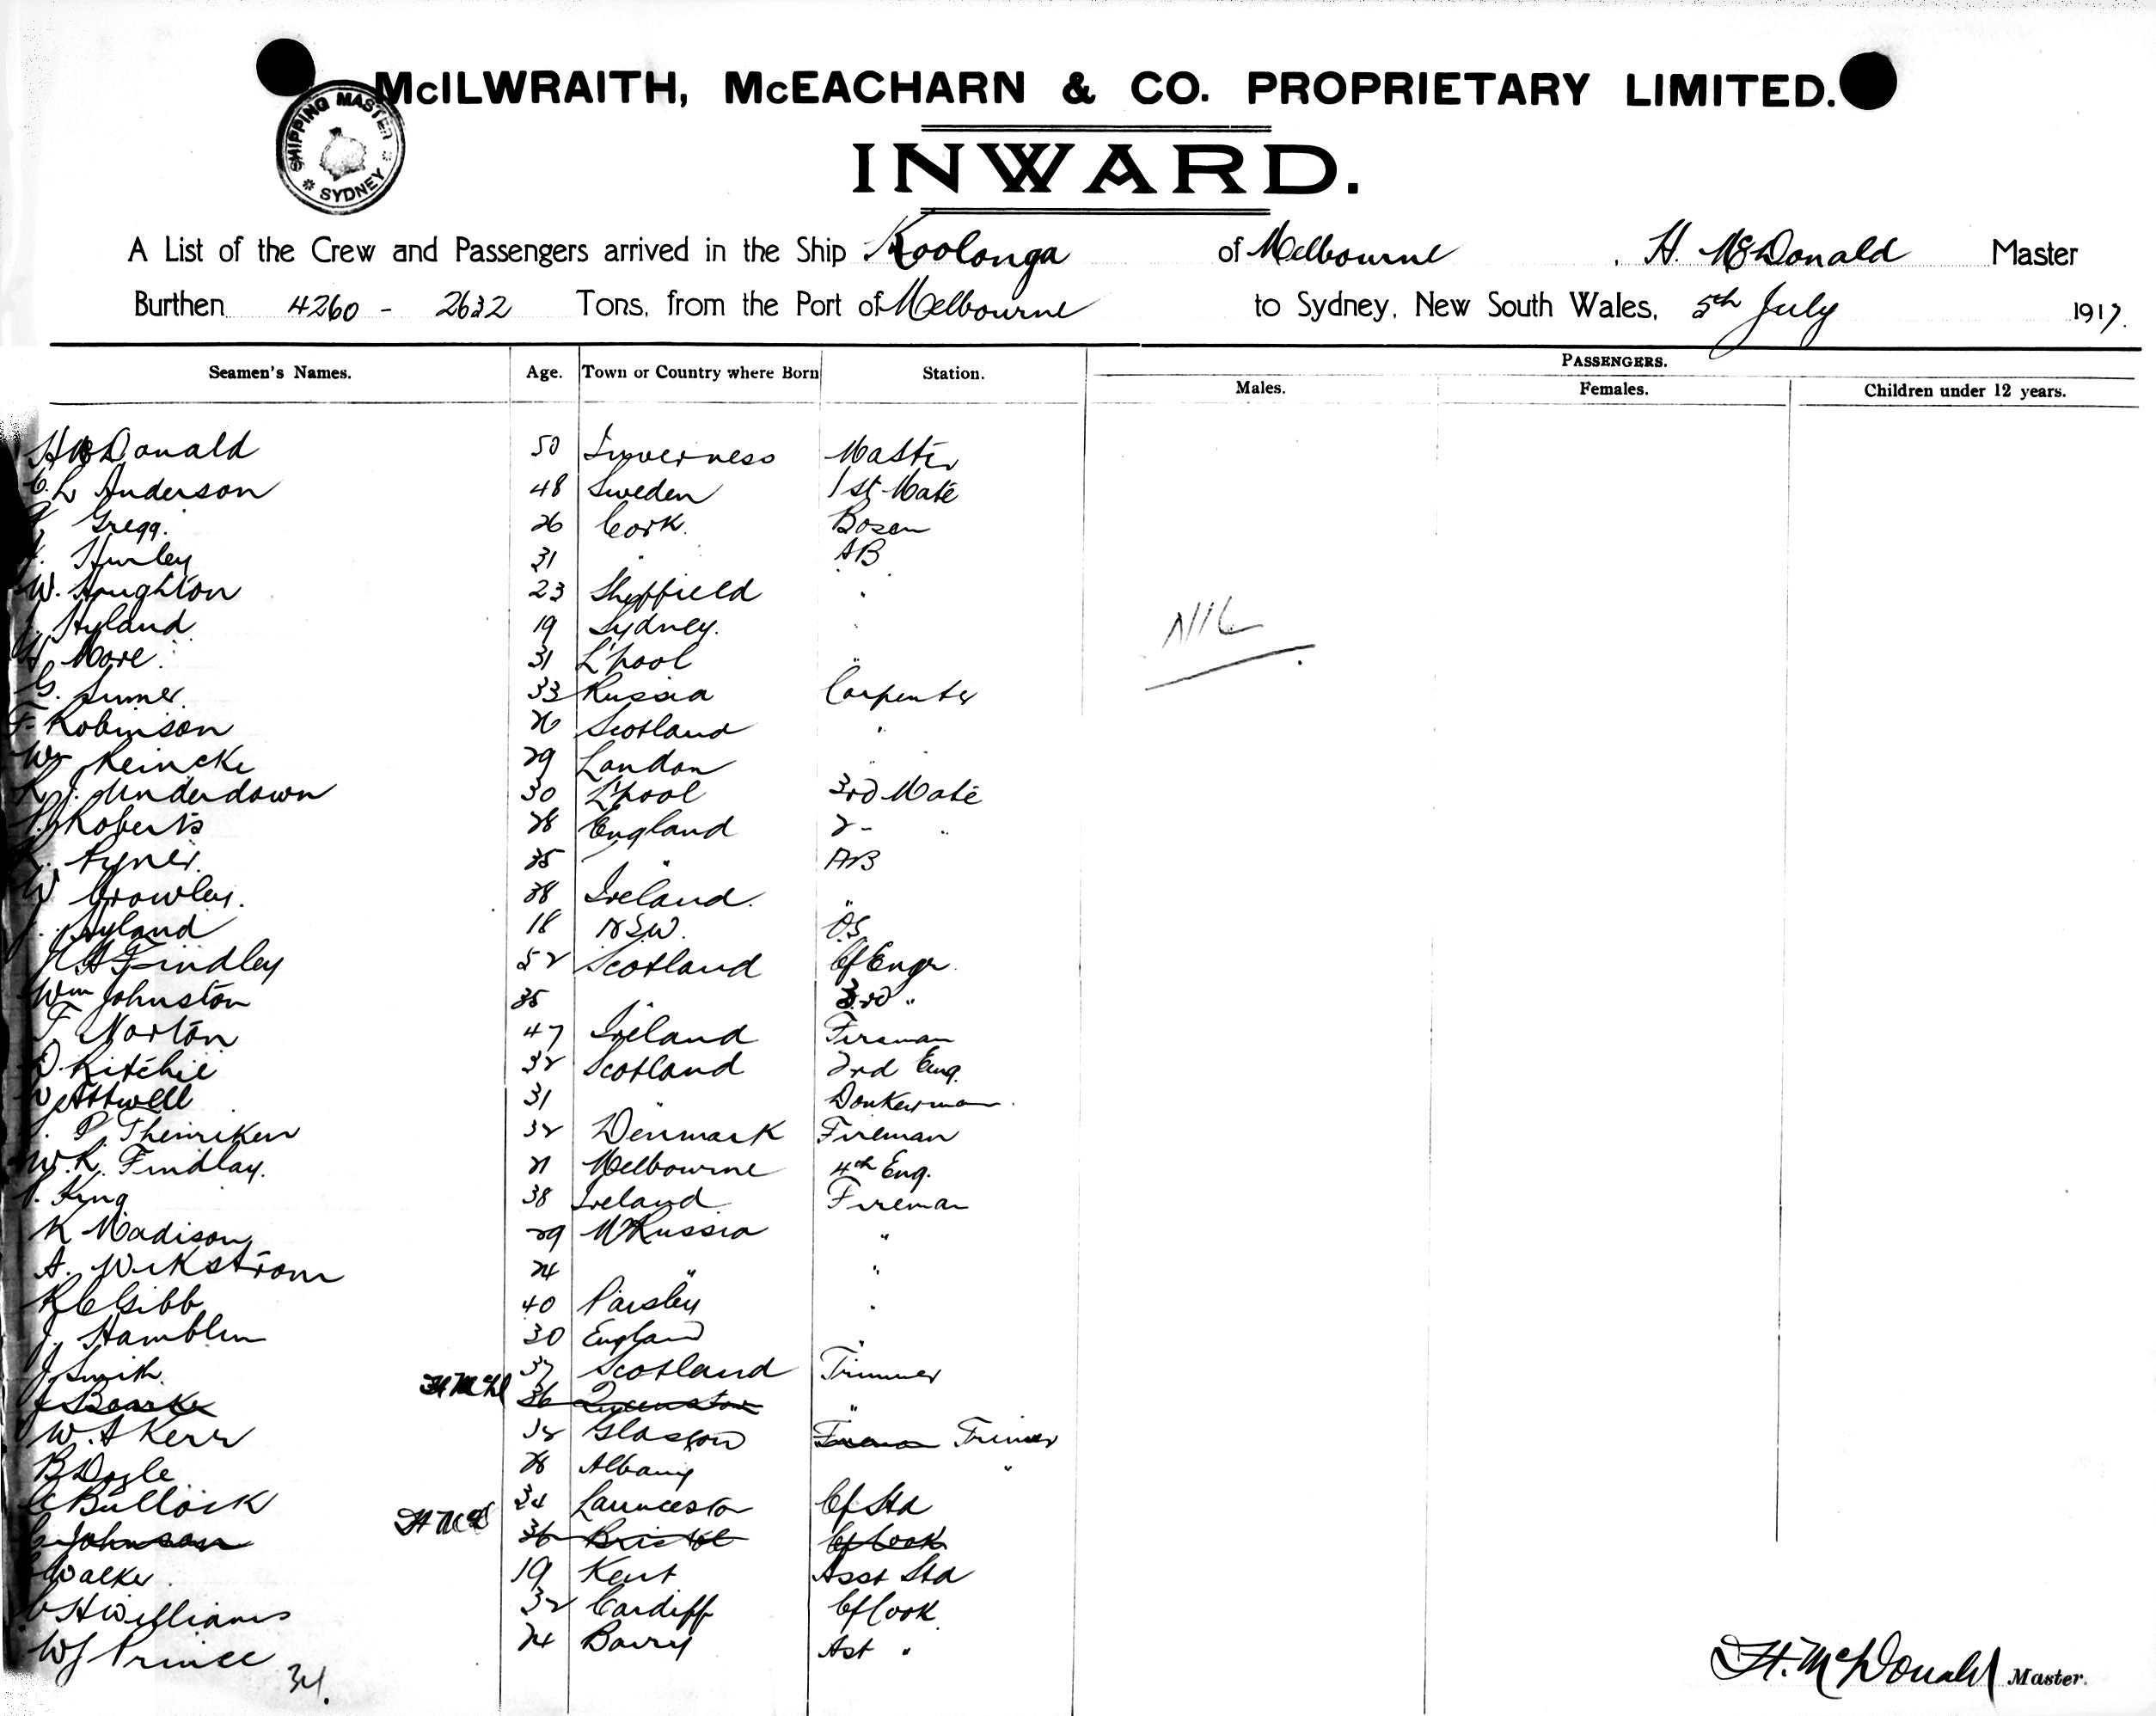 McILWRAITH, McEACHARN & CO. PROPRIETARY LIMITED.
SHIPPING MASTER * SYDNEY *
INWARD.
A List of the Crew and Passengers arrived in the Ship Koolonga of Melbourne , H. McDonald Master
Burthen 4260 - 2632 Tons, from the Port of Melbourne to Sydney, New South Wales, 5th July 1917.
Seamen's Names. Age. Town or Country where Born Station. PASSENGERS.
Males. Females. Children under 12 years.
H McDonald 50 Inverness Master
C. L Anderson 48 Sweden 1st Mate
Gregg. 26 Cork. Bosen
Hurley 31 " AB
W. Houghton 23 Sheffield "
J. Hyland 19 Sydney. "
More 31 L'pool "
NIL
G. Sumer 33 Russia Carpenter
F. Robinson 26 Scotland "
Wm Reincke 29 London "
R J. Underdown 30 L'pool 3rd Mate
Roberts 28 England 2 - "
Ryner. 35 " AB
W Crowley. 38 Ireland. "
J. Hyland 18 NSW. OS
Findley 52 Scotland Cf Engr.
Wm Johnston 35 " 3rd "
T. Norton 47 Ireland Fireman
D. Ritchie 32 Scotland 2nd Eng.
W Attwell 31 " Donkeyman.
P. Thenriken 32 Denmark Fireman
W. R. Findlay. 21 Melbourne 4th Eng.
P. King 38 Ireland Fireman
K Madison 29 Russia "
A. Wikstrom 24 " "
R C Gibb 40 Paisley "
J. Hamblin 30 England "
J Smith. 37 Scotland Trimmer
J Bourke H McD 36 Queenston "
W. A Kerr 32 Glasgow Fireman Trimer
B Doyle 28 Albany "
C Bullock 34 Launceston Cf Std
C Johnson H McD 36 Bristol Cf Cook
Walker 19 Kent Asst Std
C H Williams 32 Cardiff Cf Cook
W J Prince 24 Barry Ast "
34.
H. McDonald Master.